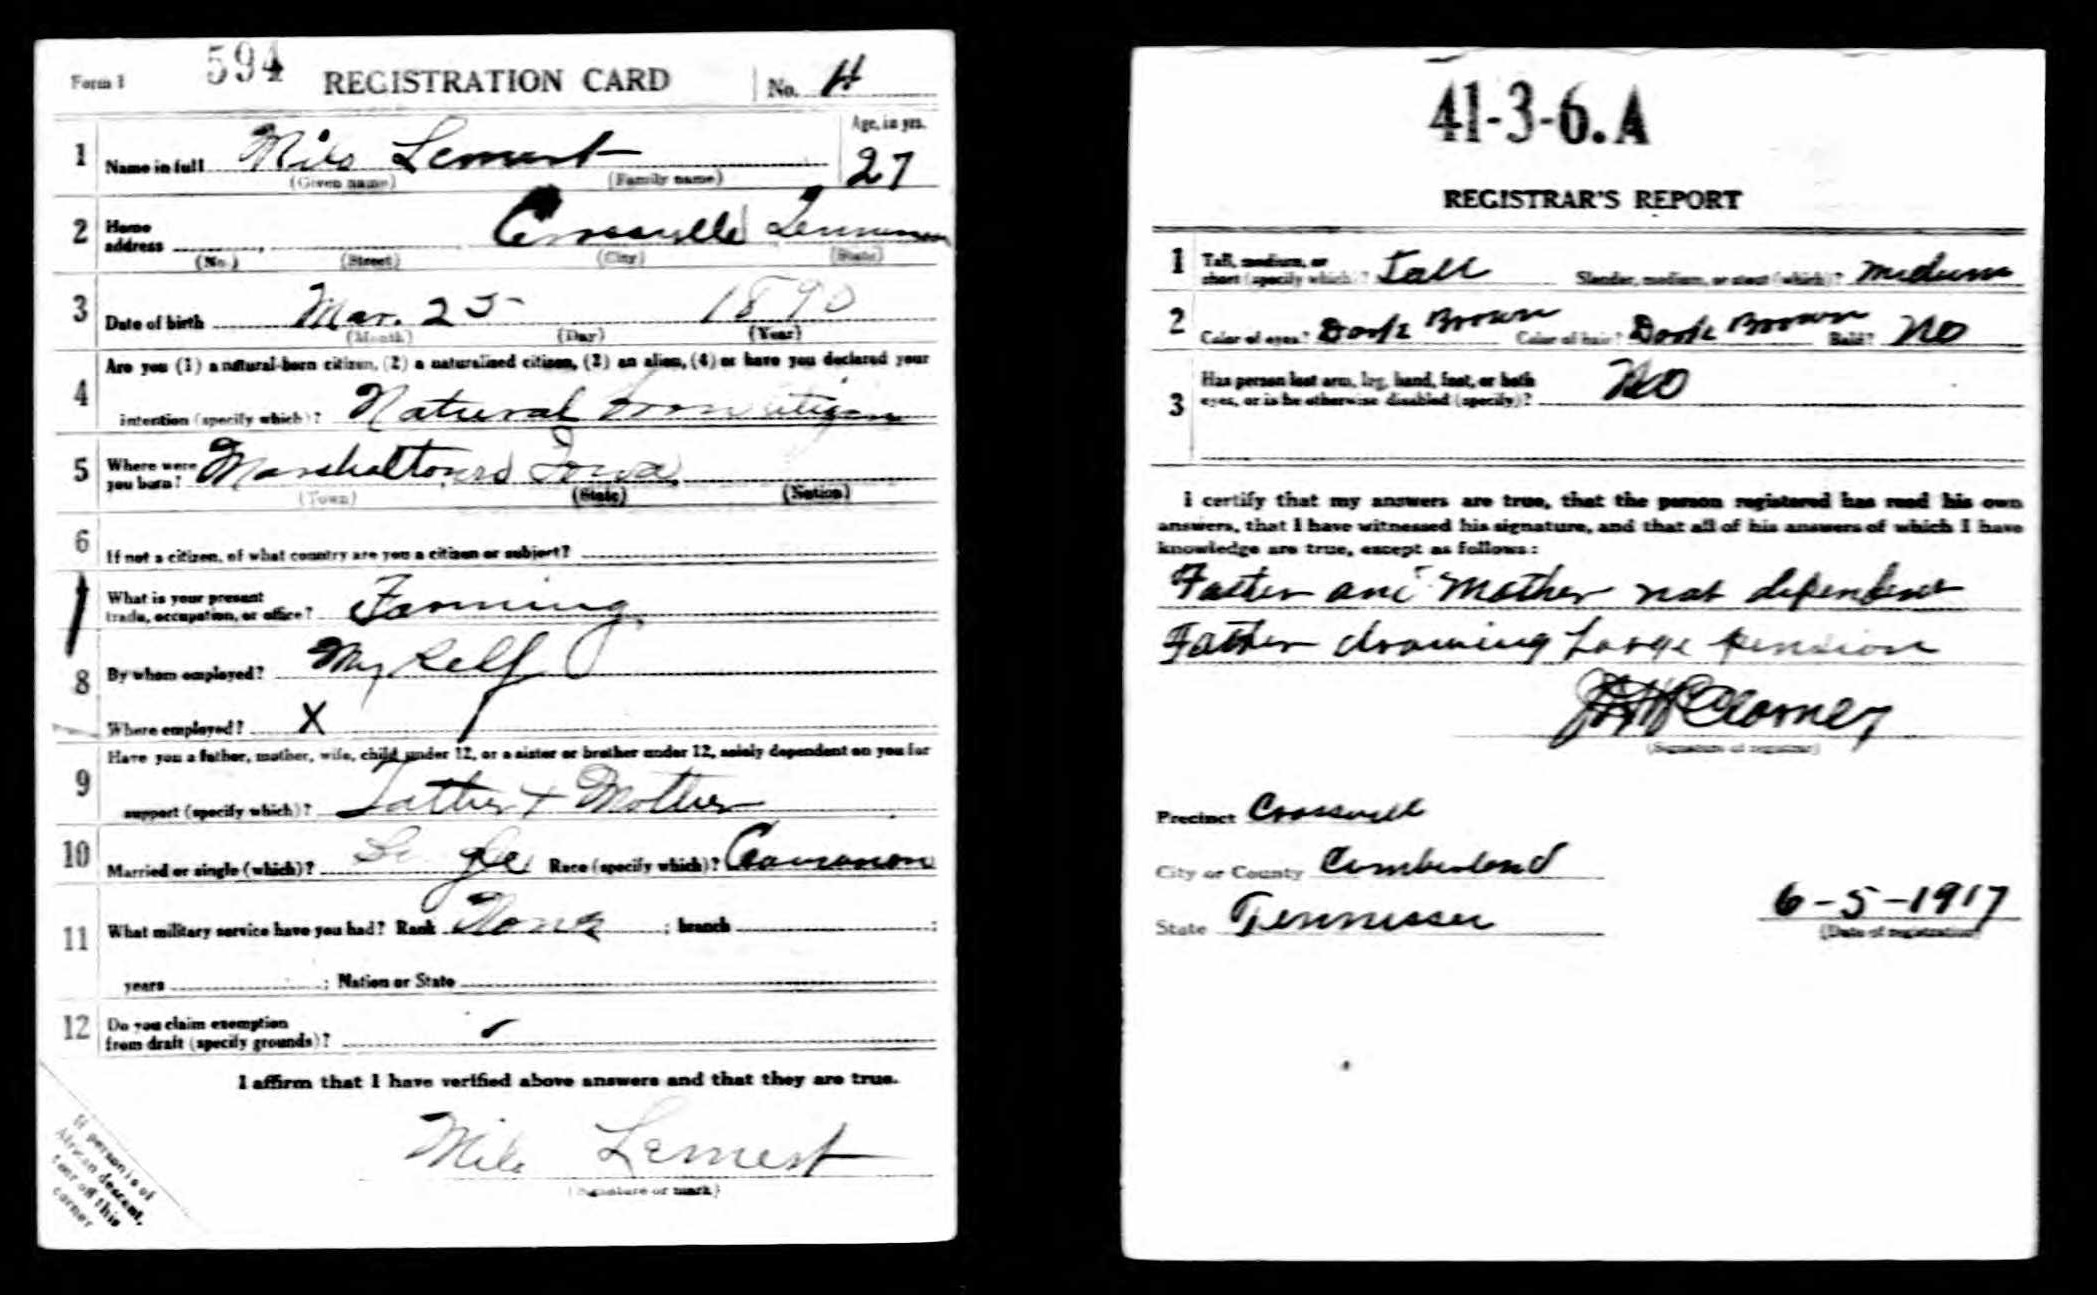 Form 1 594 REGISTRATION CARD No. 4
1 Name in full Milo Lemert Age, in yrs. 27
(Given name) (Family name)
2 Home address Crossville Tennessee
(No.) (Street) (City) (State)
3 Date of birth Mar. 25 1890
(Month) (Day) (Year)
4 Are you (1) a natural-born citizen, (2) a naturalized citizen, (3) an alien, (4) or have you declared your
intention (specify which)? Natural born citizen
5 Where were you born? Marshaltown Iowa
(Town) (State) (Nation)
6 If not a citizen, of what country are you a citizen or subject?
What is your present
trade, occupation, or office? Farming
8 By whom employed? My self
Where employed? X
9 Have you a father, mother, wife, child under 12, or a sister or brother under 12, solely dependent on you for
support (specify which)? Father + Mother
10 Married or single (which)? Single Race (specify which)?
11 What military service have you had? Rank None ; branch ;
years ; Nation or State
12 Do you claim exemption
from draft (specify grounds)?
I affirm that I have verified above answers and that they are true.
Milo Lemert
(Signature or mark)
If person is of
African descent,
tear off this
corner
41-3-6. A
REGISTRAR'S REPORT
1 Tall, medium, or
short (specify which)? Tall Slender, medium, or stout (which)? medium
2 Color of eyes? Dark Brown Color of hair? Dark Brown Bald? No
3 Has person lost arm, leg, hand, foot, or both
eyes, or is he otherwise disabled (specify)? No
I certify that my answers are true, that the person registered has read his own
answers, that I have witnessed his signature, and that all of his answers of which I have
knowledge are true, except as follows:
Father and Mother not dependent
Father drawing Large pension
(Signature of registrar)
Precinct Crossville
City or County Cumberland
State Tennessee 6-5-1917
(Date of registration)